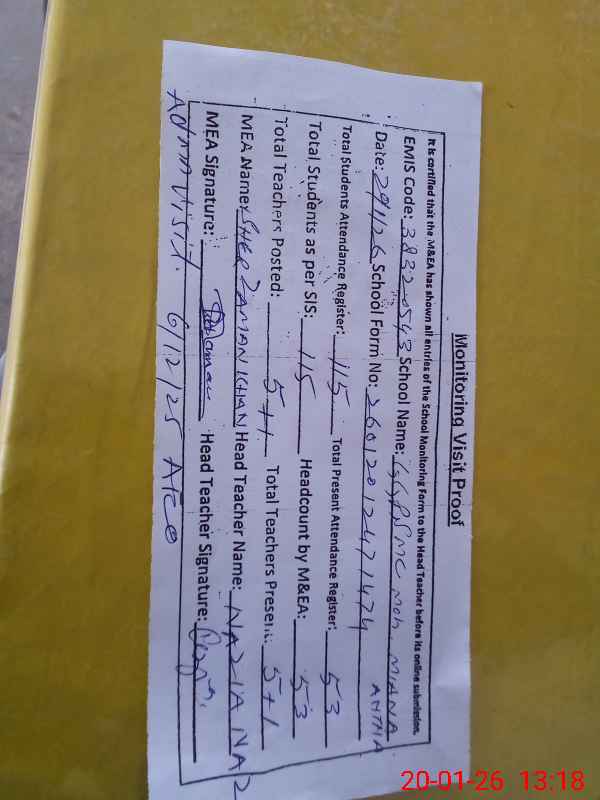 Monitoring Visit Proof
It is certified that the M&EA has shown all entries of the School Monitoring Form to the Head Teacher before its online submission.
EMIS Code: 38320543 School Name: MC Moh. MIANA
ANTHA
Date: School Form No: 2601201247 1474
Total Students Attendance Register: 115 Total Present Attendance Register: 53
Total Students as per SIS: 115 Headcount by M&EA: 53
Total Teachers Posted: 5+1 Total Teachers Present: 5+1
MEA Name: SHER ZAMAN KHAN Head Teacher Name: NAZIA NAZ
MEA Signature: Head Teacher Signature:
Admn Visit. 6/12/25 AEO
20-01-26 13:18